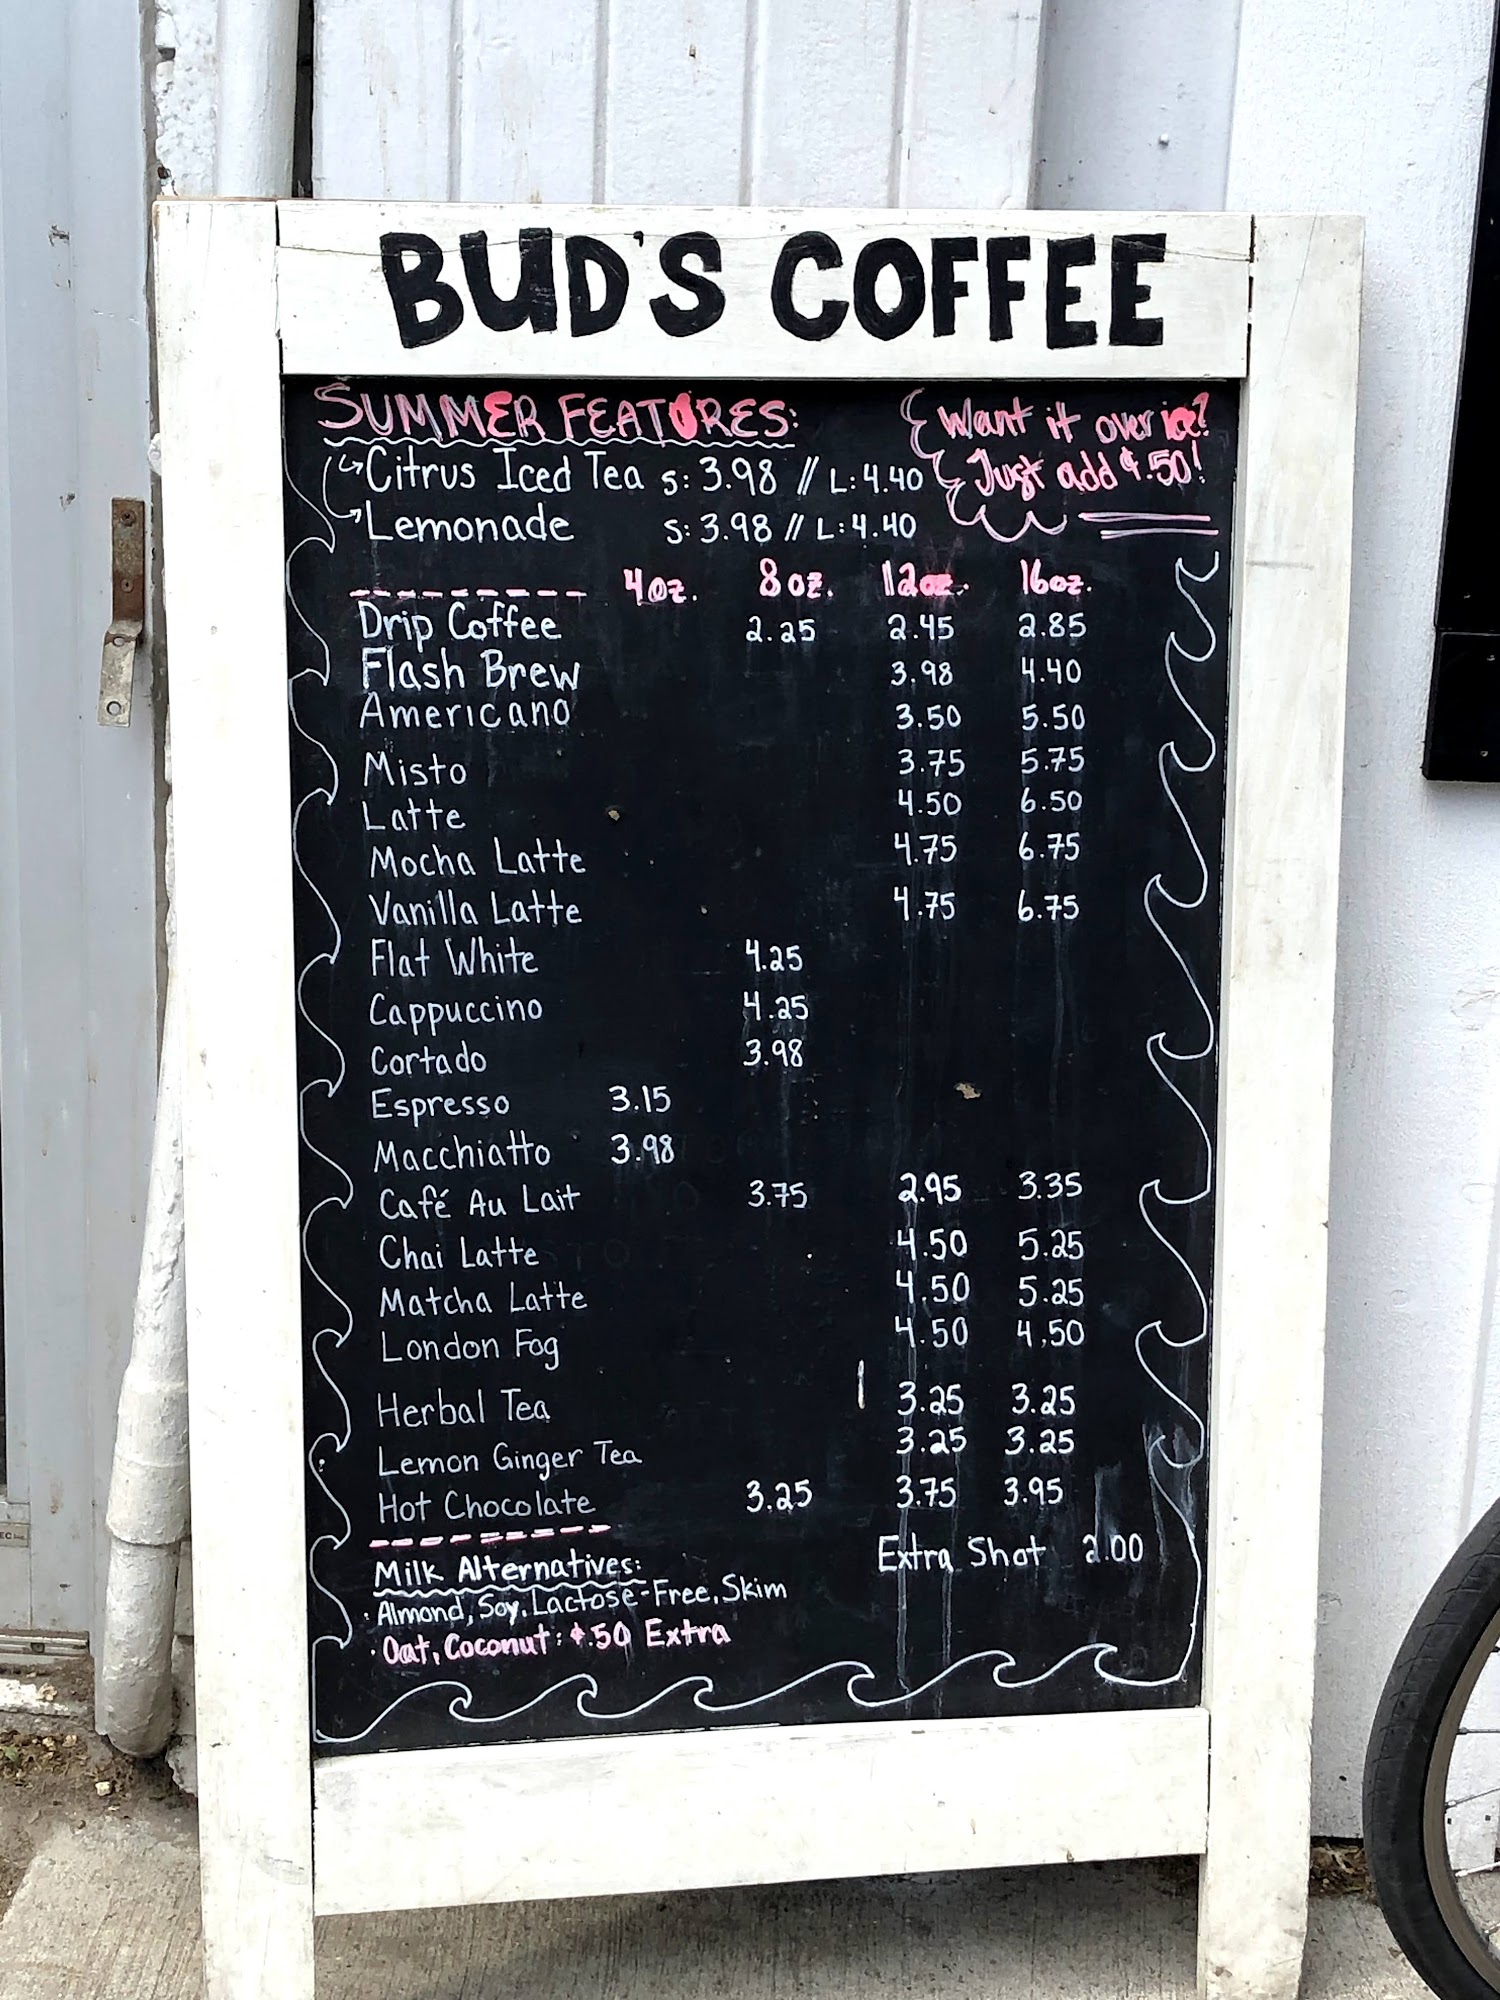 BUD'S COFFEE
SUMMER FEATURES:
Citrus Iced Tea S: 3.98 // L: 4.40
Lemonade S: 3.98 // L: 4.40
Want it over ice?
Just add $.50!
4oz. 8oz. 12oz. 16oz.
Drip Coffee 2.25 2.45 2.85
Flash Brew 3.98 4.40
Americano 3.50 5.50
Misto 3.75 5.75
Latte 4.50 6.50
Mocha Latte 4.75 6.75
Vanilla Latte 4.75 6.75
Flat White 4.25
Cappuccino 4.25
Cortado 3.98
Espresso 3.15
Macchiatto 3.98
Café Au Lait 3.75 2.95 3.35
Chai Latte 4.50 5.25
Matcha Latte 4.50 5.25
London Fog 4.50 4.50
Herbal Tea 3.25 3.25
Lemon Ginger Tea 3.25 3.25
Hot Chocolate 3.25 3.75 3.95
Extra Shot 2.00
Milk Alternatives:
· Almond, Soy, Lactose-Free, Skim
· Oat, Coconut: $.50 Extra